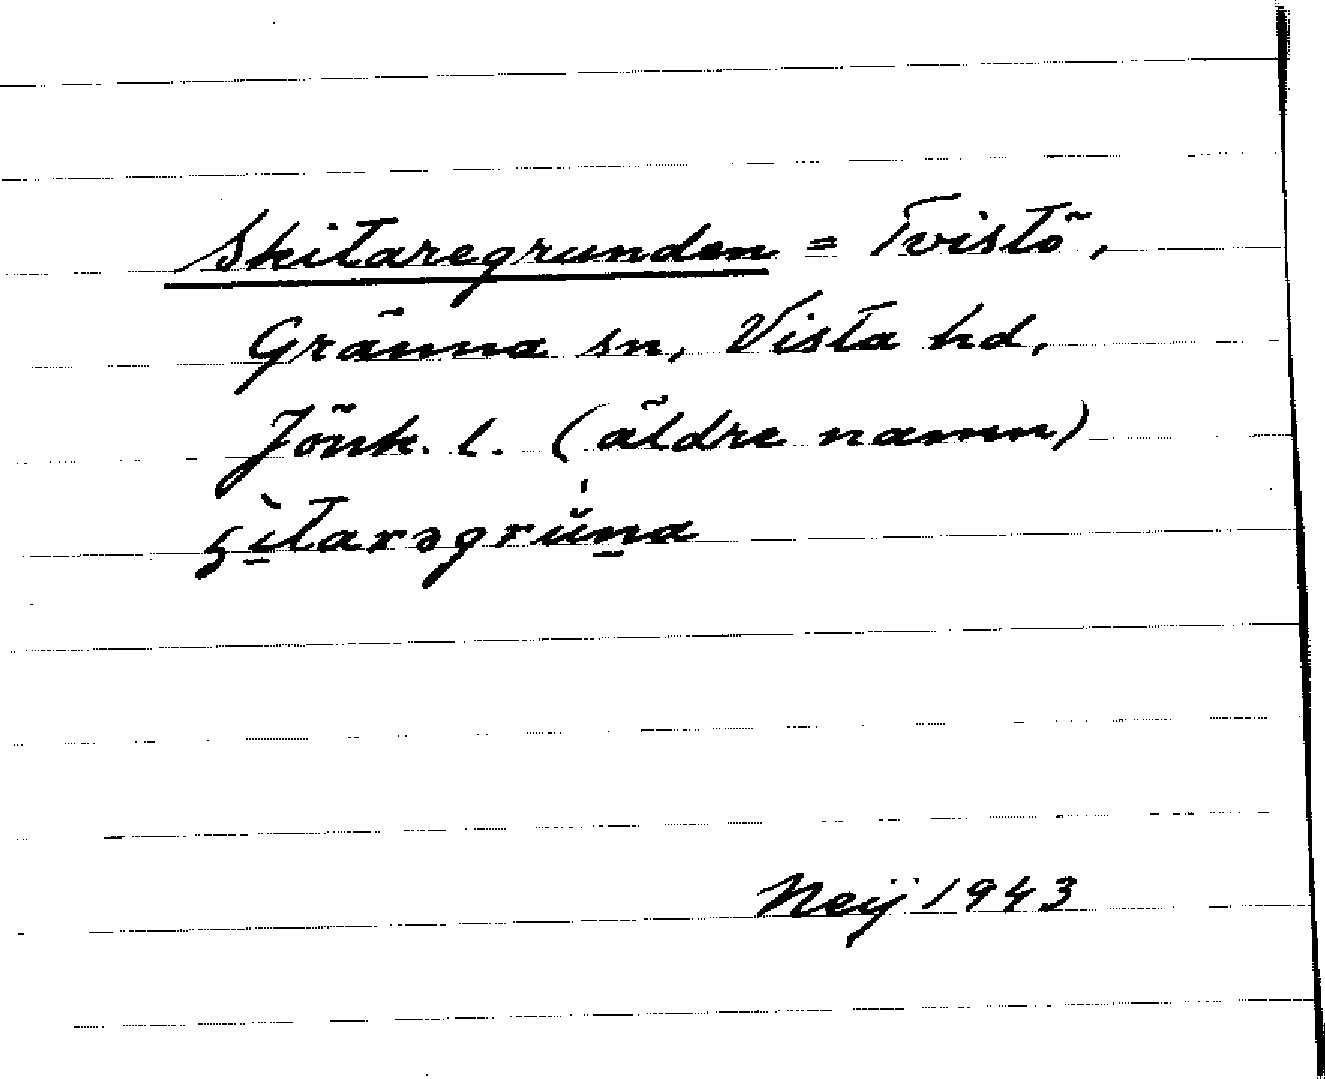 Skitaregrunden = Tvistö,
Gränna sn, Vista hd,
Jönk. l. (äldre namn)
ʂì̱tarəgrŭ'n̲a
Neij 1943